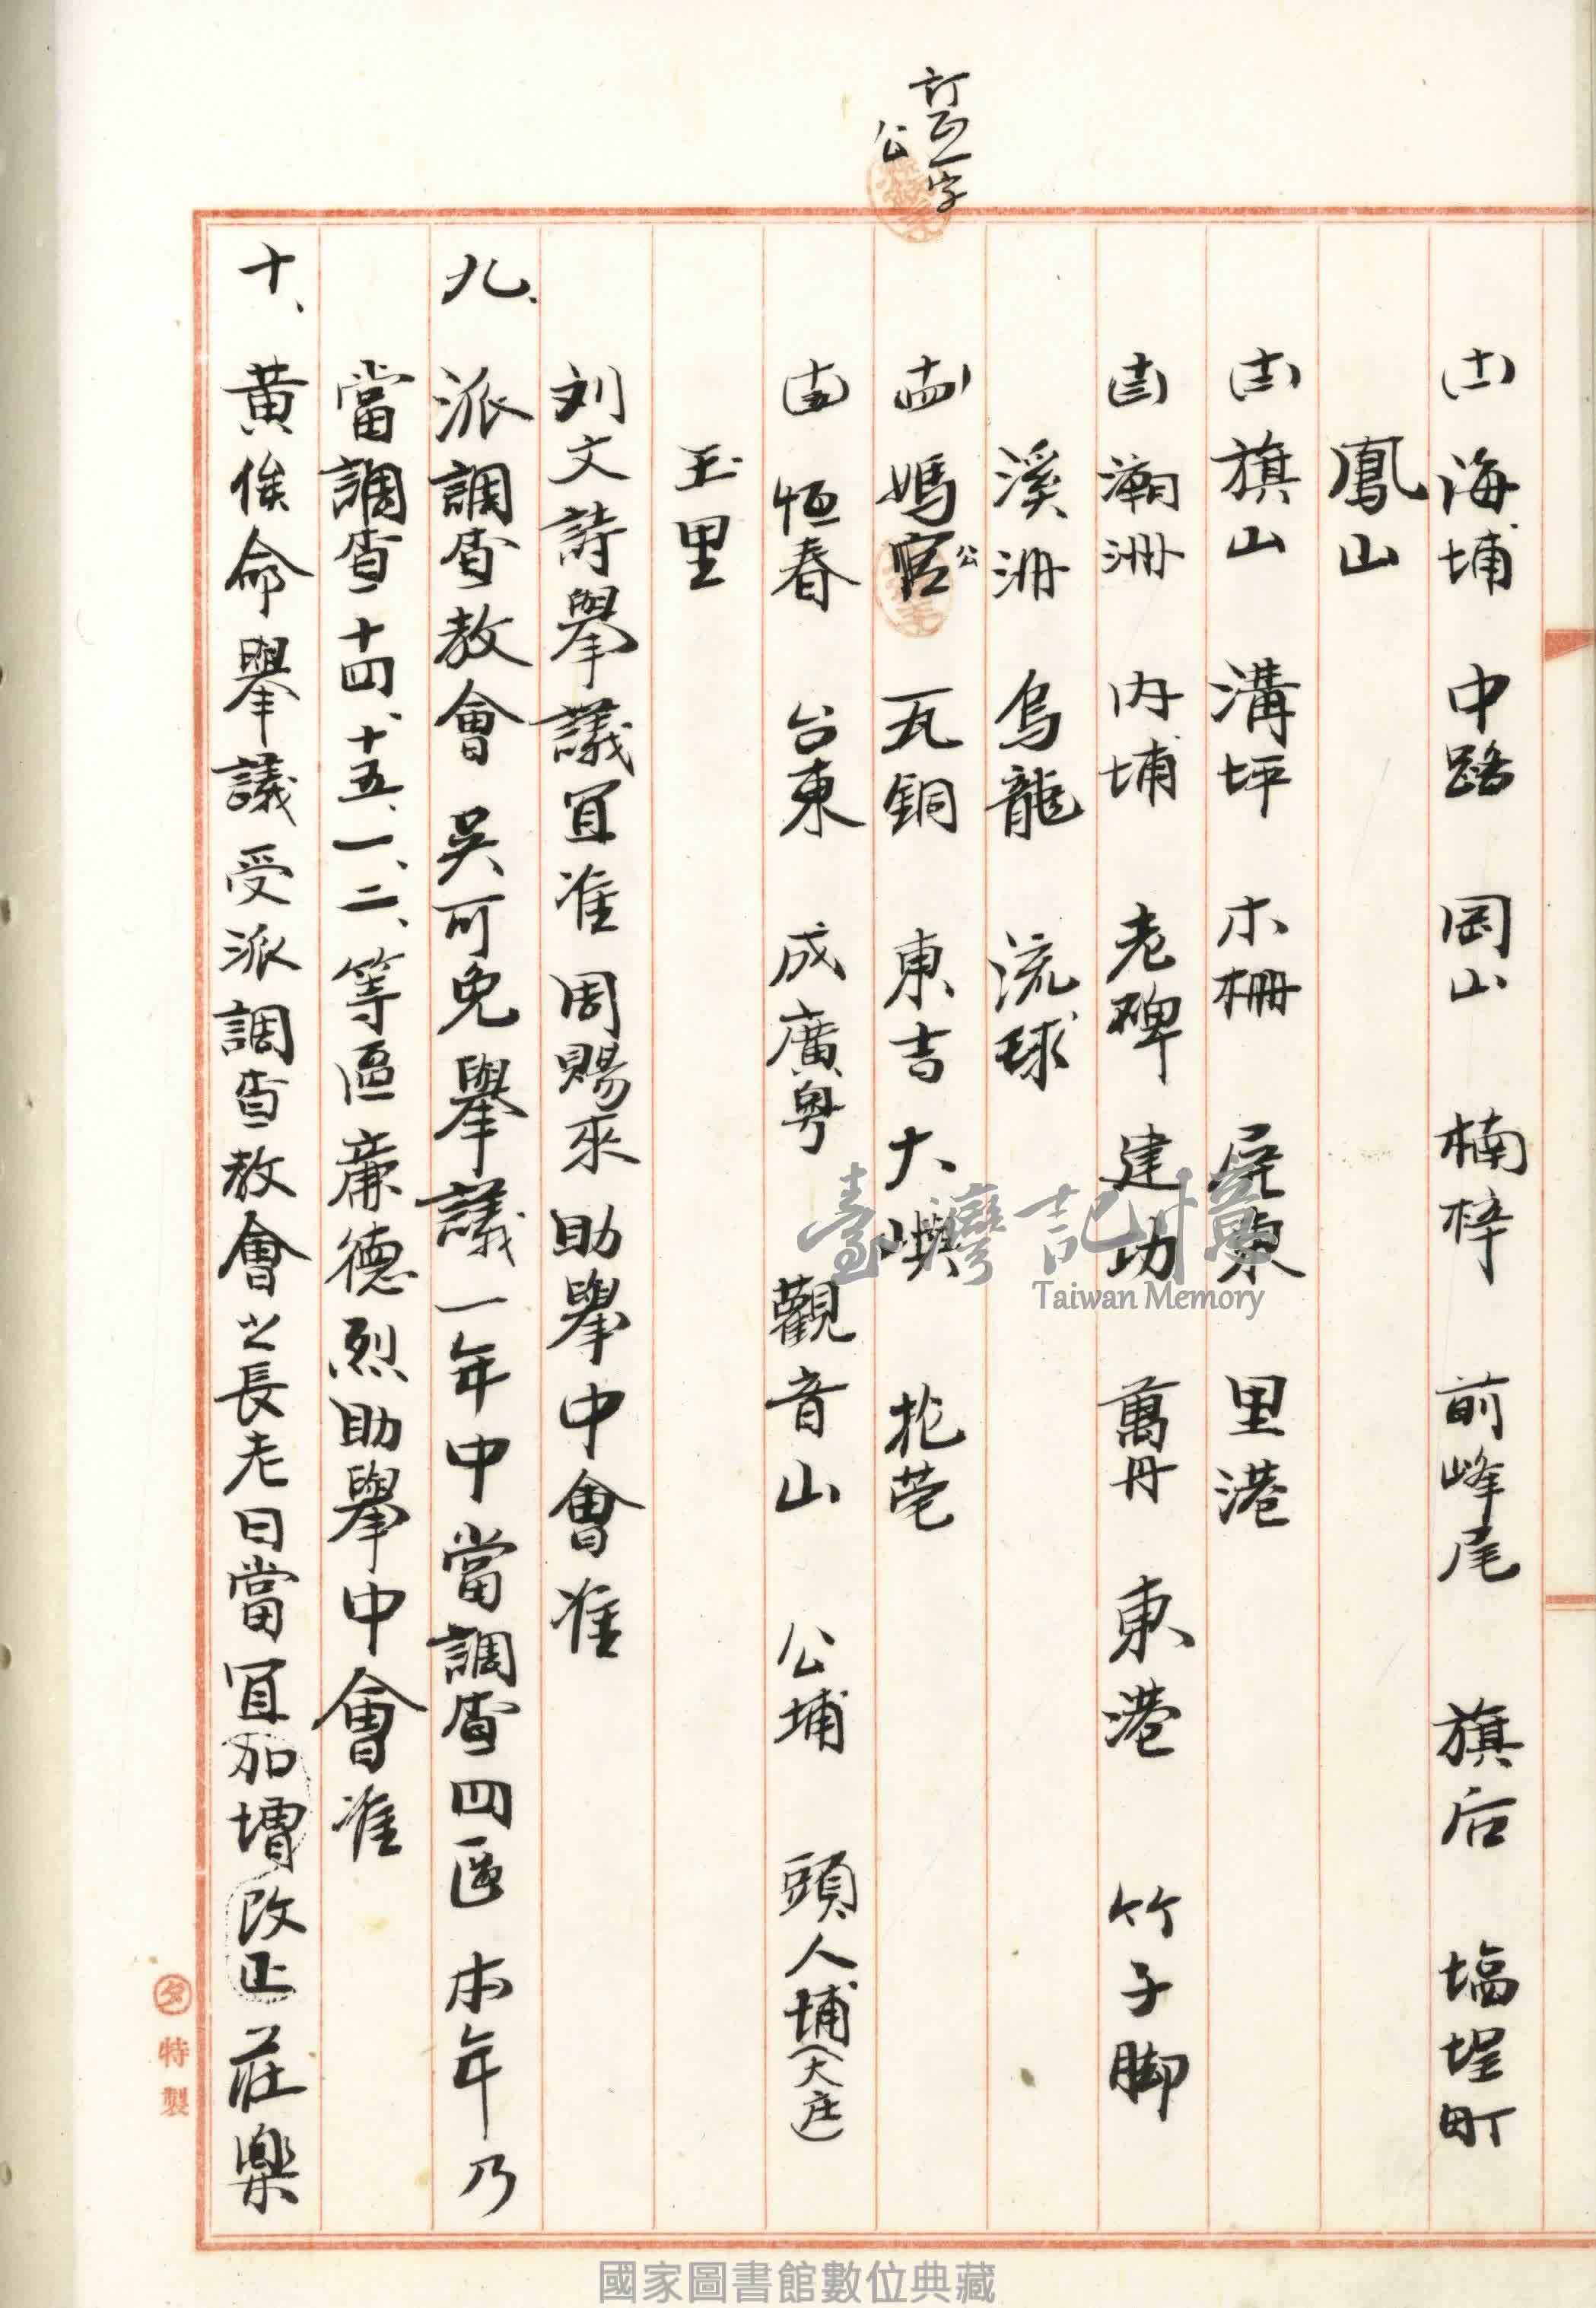 訂正一字
公
(十一) 海埔 中路 岡山 楠梓 前峰尾 旗后 塩埕町
鳳山
(十二) 旗山 溝坪 木柵 屏東 里港
(十三) 瀨洲 內埔 老碑 建功 萬丹 東港 竹子脚
溪洲 烏龍 流球
(十四) 媽宮 瓦銅 東吉 大嶼
公
(十五) 恒春 台東 成廣粤 觀音山 公埔 頭人埔(大庄)
玉里
刘文詩舉議冝准 周賜來助舉中會准
九、派調查教會 吳可免舉議一年中當調查四區 本年乃
當調查十四、十五、一、二、等區廉德烈助舉中會准
十、黃俟命舉議受派調查教會之長老日當冝加增改正 莊樂
特製
臺灣記憶
Taiwan Memory
國家圖書館數位典藏